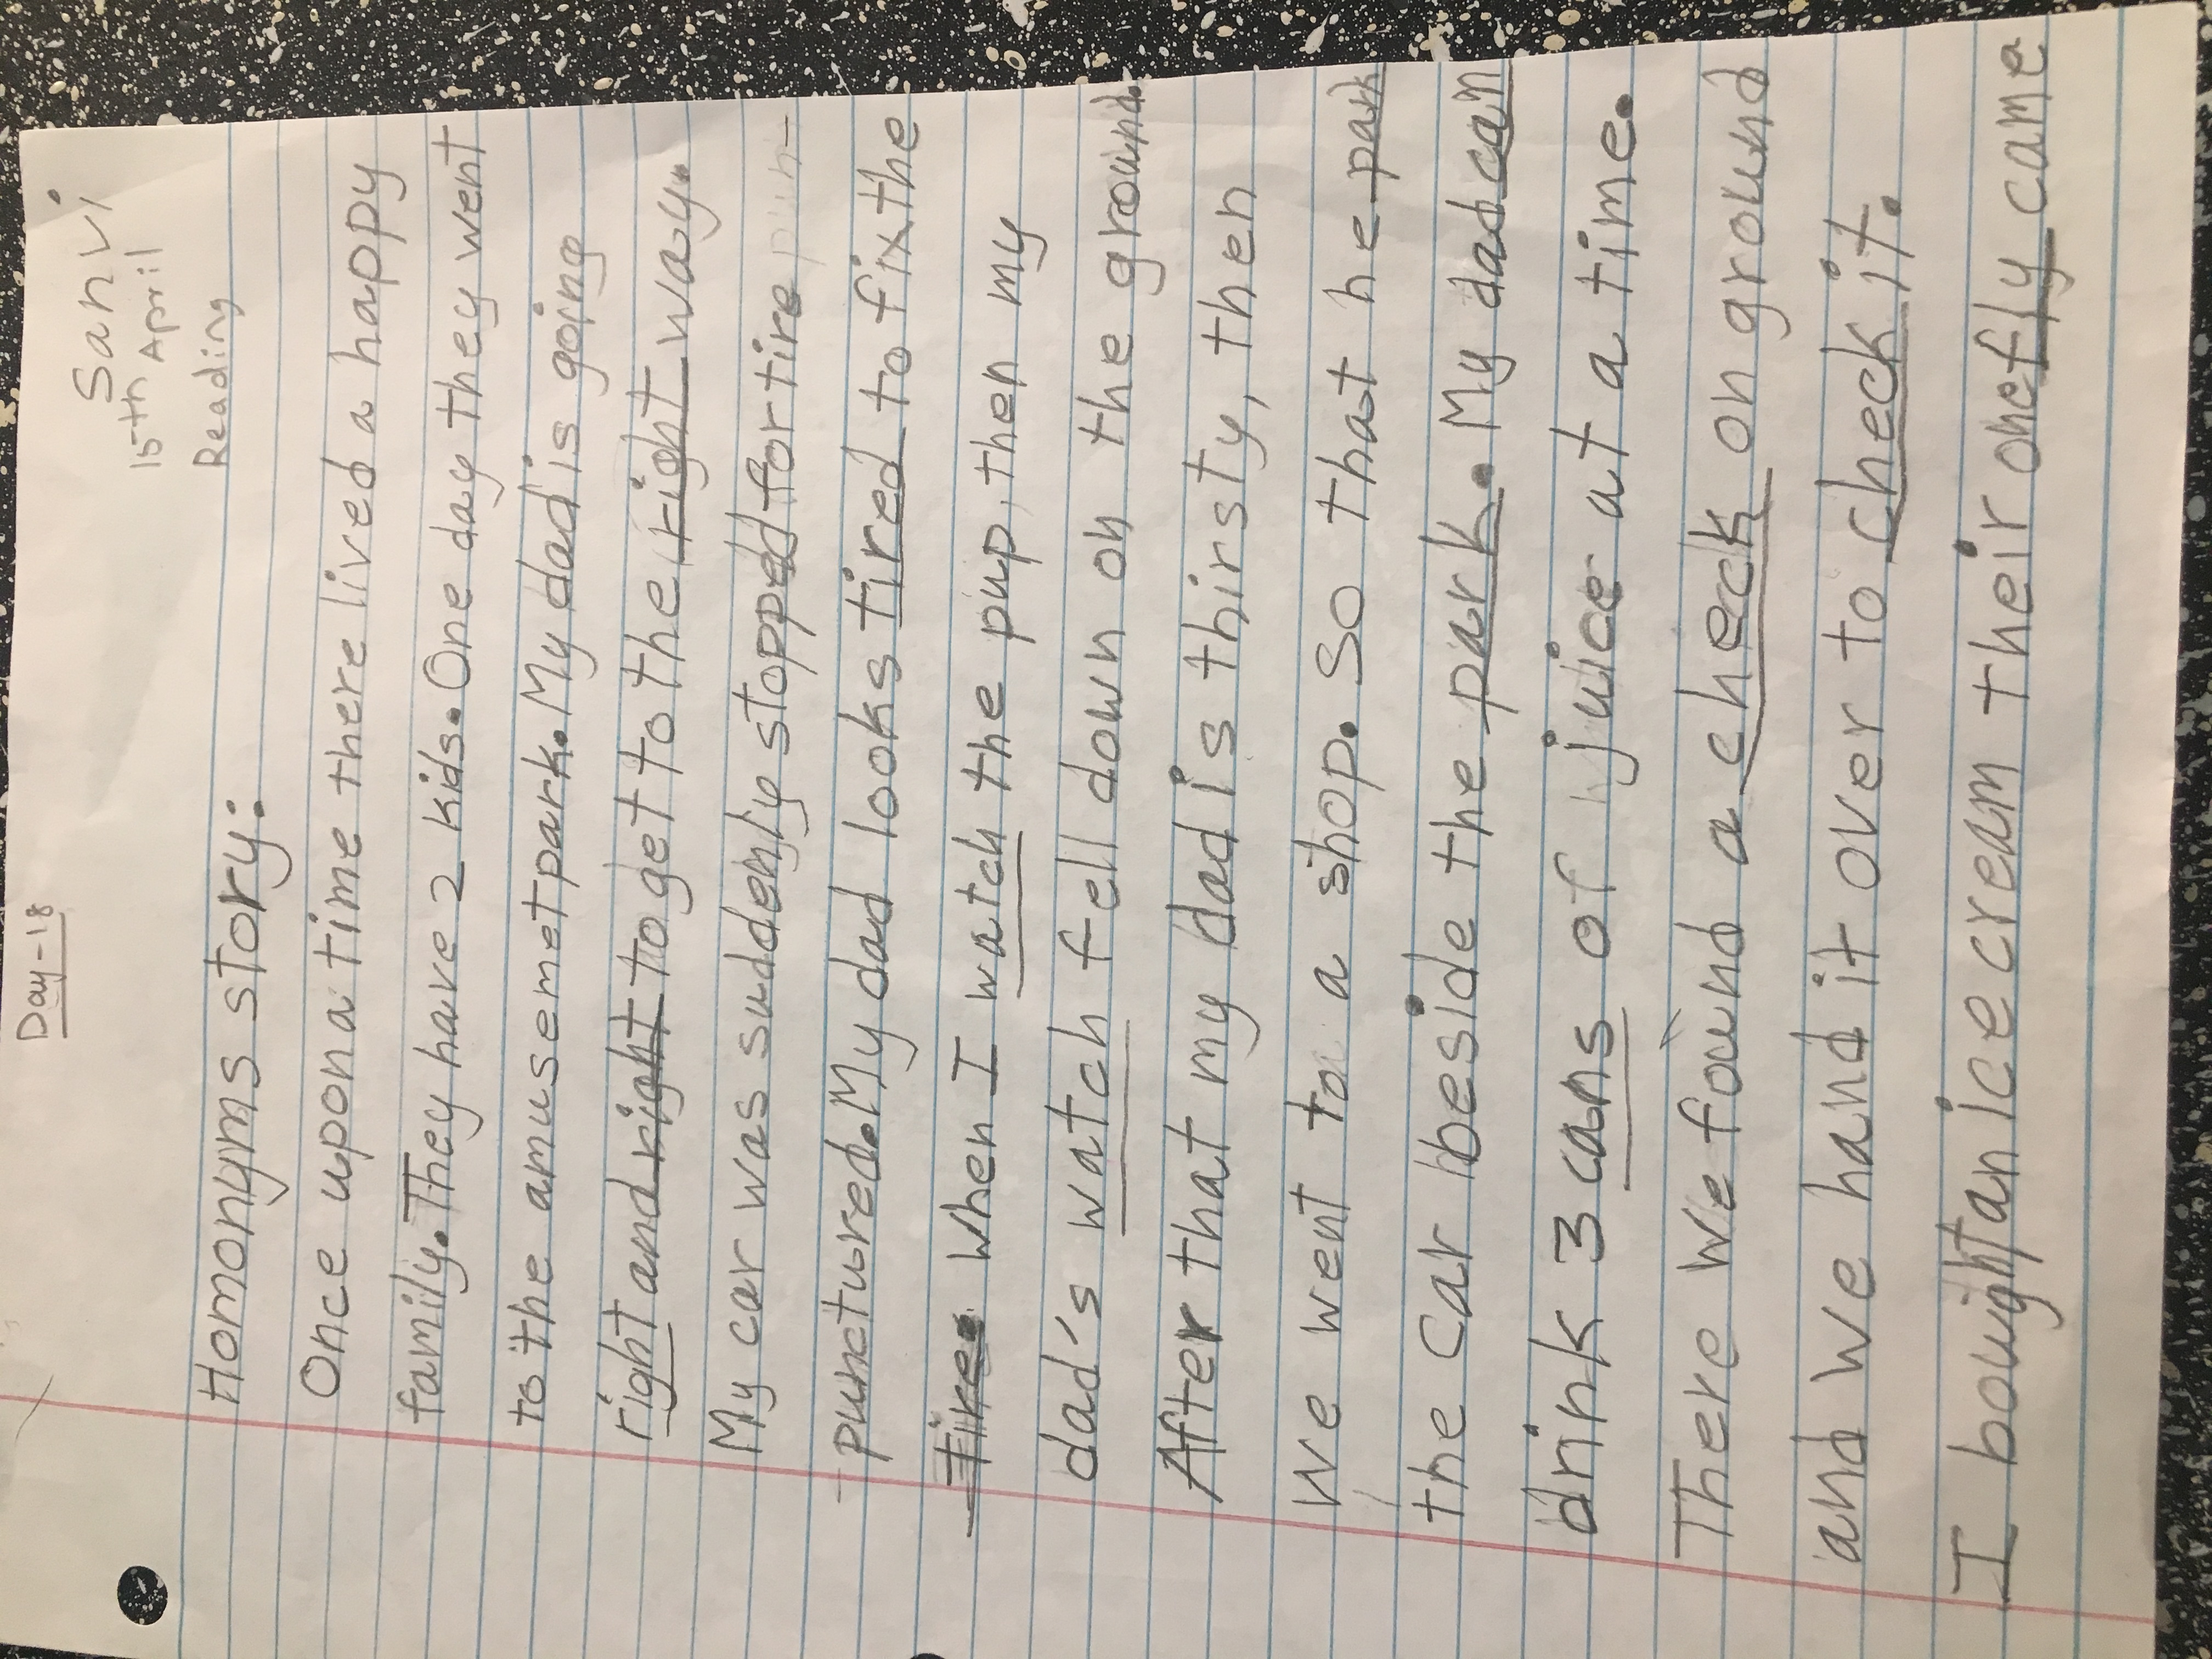 Day-18
Sanvi
15th April
Reading
Homonyms story:
Once upon a time there lived a happy
family. They have 2 kids. One day they went
to the amusemet park. My dad is going
right and right to get to the right way.
My car was suddenly stopped for tire
punctured. My dad looks tired to fix the
tire. When I watch the pup, then my
dad's watch fell down on the ground.
After that my dad is thirsty, then
We went to a shop. So that he park
the car beside the park. My dad can
drink 3 cans of juice at a time.
There We found a check on ground
and We hand it over to check it.
I bought an ice cream their one fly came